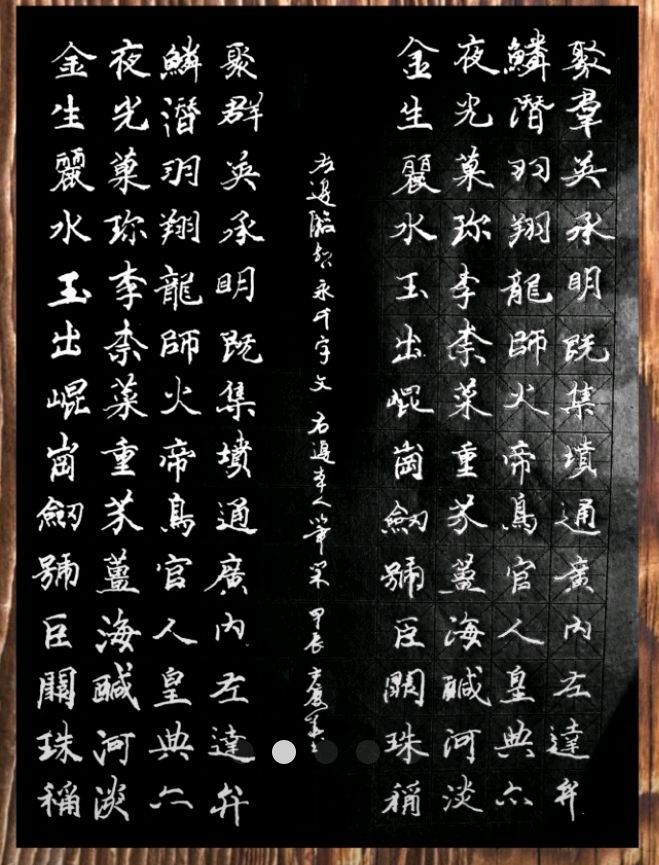 聚羣英承明既集墳通廣內左達弁
鱗潛羽翔龍師火帝鳥官人皇典亦
夜光菓珍李柰菜重芥薑海鹹河淡
金生麗水玉出崐崗劒號巨闕珠稱
左邊臨智永千字文 右邊本人筆 甲辰
聚群英承明既集墳通廣內左達弁
鱗潛羽翔龍師火帝鳥官人皇典亦
夜光菓珍李柰菜重芥薑海鹹河淡
金生麗水玉出崐崗劒號巨闕珠稱